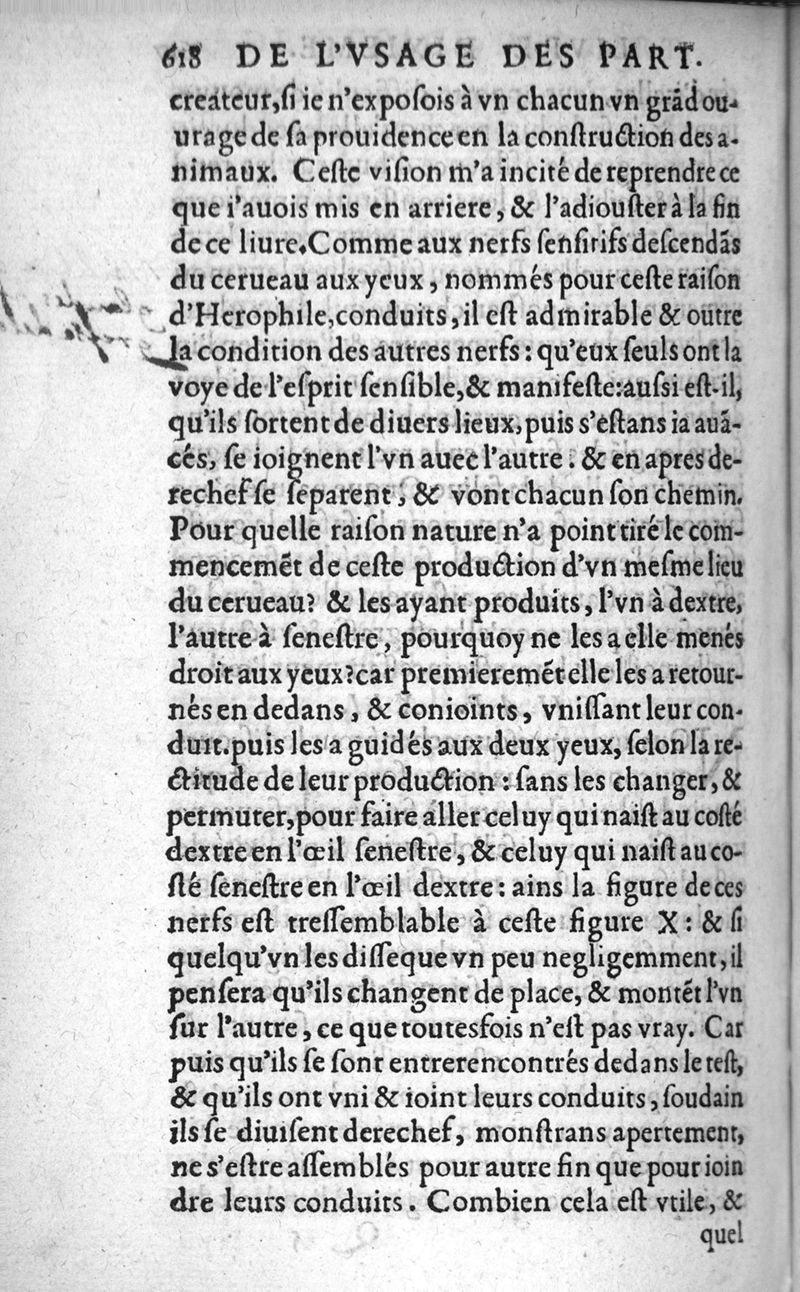 618 DE L'VSAGE DES PART.
createur, ſi ie n'expoſois à vn chacun vn grãd ou-
urage de ſa prouidence en la conſtruction des a-
nimaux. Ceſte viſion m'a incité de reprendre ce
que i'auois mis en arriere, & l'adiouſter à la fin
de ce liure. Comme aux nerfs ſenſitifs deſcendãs
du cerueau aux yeux, nommés pour ceſte raiſon
d'Herophile, conduits, il eſt admirable & outre
la condition des autres nerfs: qu'eux ſeuls ont la
voye de l'eſprit ſenſible, & manifeſte: auſsi eſt-il,
qu'ils ſortent de diuers lieux, puis s'eſtans ia auã-
cés, ſe ioignent l'vn auec l'autre: & en apres de-
rechef ſe ſeparent, & vont chacun ſon chemin.
Pour quelle raiſon nature n'a point tiré le com-
mencemẽt de ceſte production d'vn meſme lieu
du cerueau? & les ayant produits, l'vn à dextre,
l'autre à ſeneſtre, pourquoy ne les a elle menés
droit aux yeux? car premieremẽt elle les a retour-
nés en dedans, & conioints, vniſſant leur con-
duit. puis les a guidés aux deux yeux, ſelon la re-
ctitude de leur production: ſans les changer, &
permuter, pour faire aller celuy qui naiſt au coſté
dextre en l'œil ſeneſtre, & celuy qui naiſt au co-
ſté ſeneſtre en l'œil dextre: ains la figure de ces
nerfs eſt treſſemblable à ceſte figure X: & ſi
quelqu'vn les diſſeque vn peu negligemment, il
penſera qu'ils changent de place, & montẽt l'vn
ſur l'autre, ce que toutesfois n'eſt pas vray. Car
puis qu'ils ſe ſont entrerencontrés dedans le teſt,
& qu'ils ont vni & ioint leurs conduits, ſoudain
ils ſe diuiſent derechef, monſtrans apertement,
ne s'eſtre aſſemblés pour autre fin que pour ioin
dre leurs conduits. Combien cela eſt vtile, &
quel